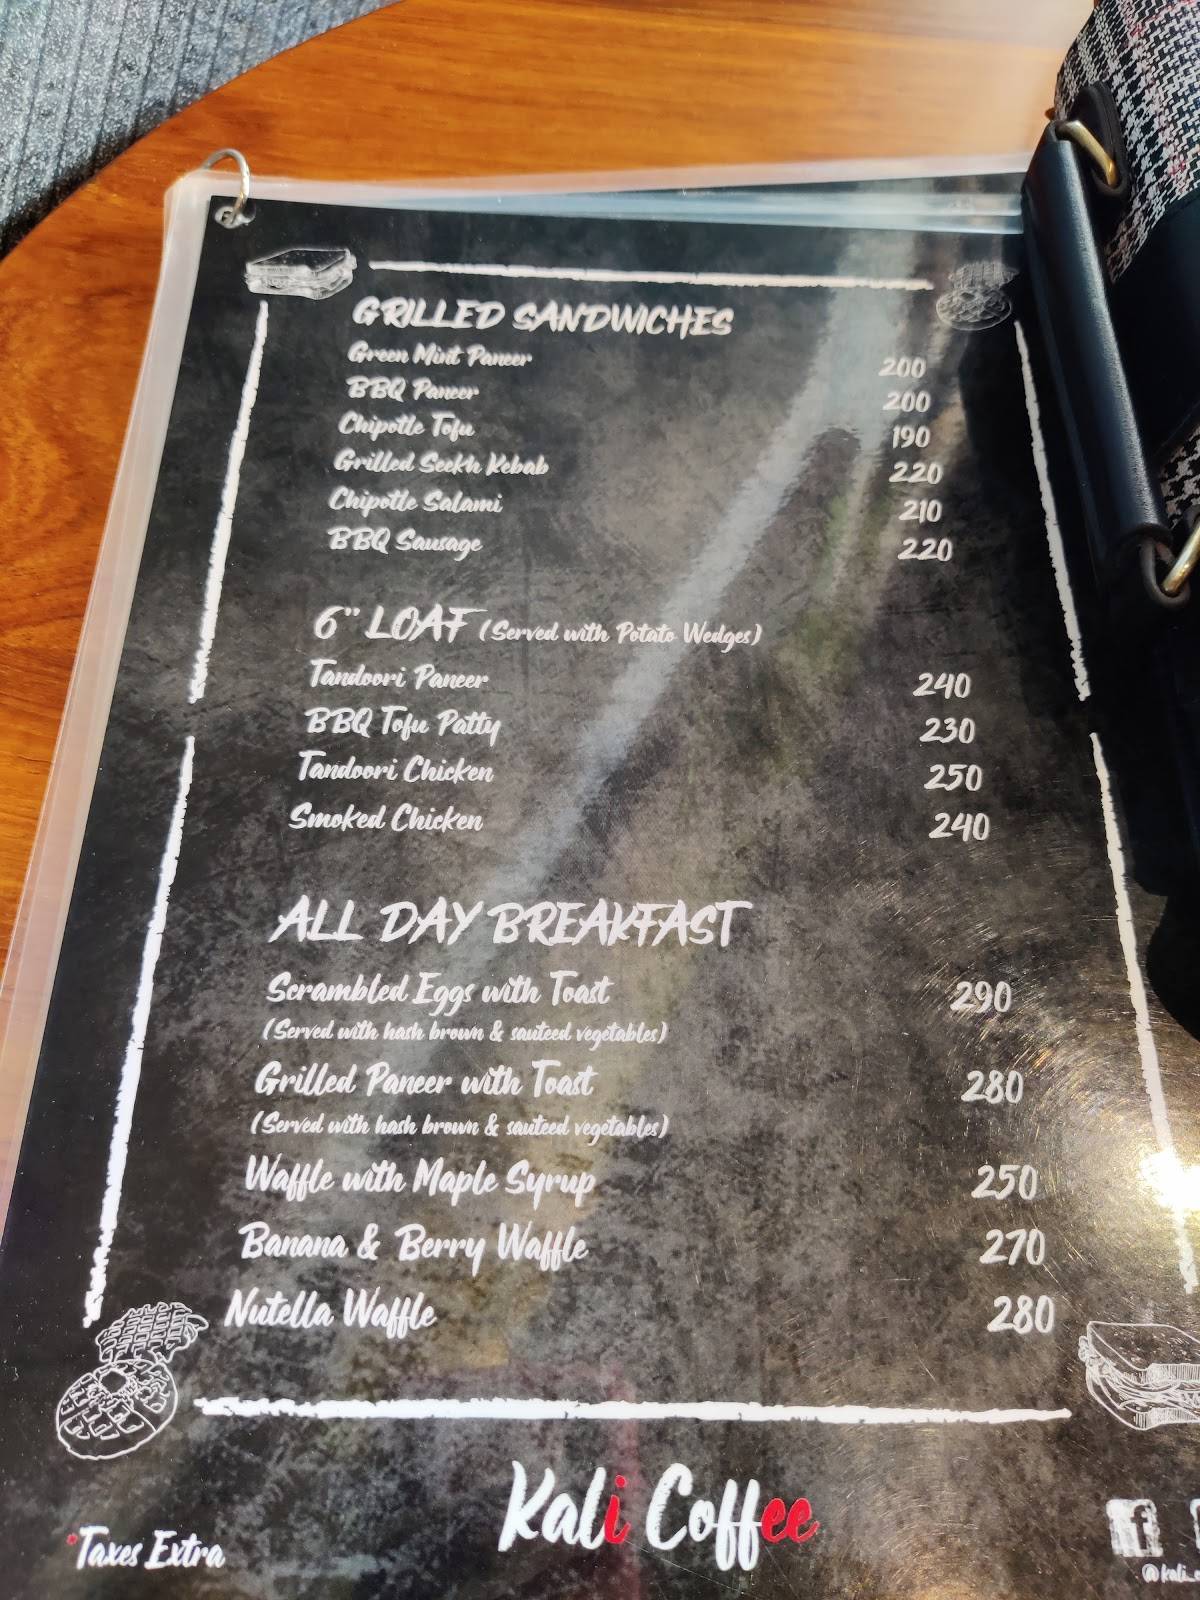 GRILLED SANDWICHES
Green Mint Paneer 200
BBQ Paneer 200
Chipotle Tofu 190
Grilled Seekh Kebab 220
Chipotle Salami 210
BBQ Sausage 220
6" LOAF (Served with Potato Wedges)
Tandoori Paneer 240
BBQ Tofu Patty 230
Tandoori Chicken 250
Smoked Chicken 240
ALL DAY BREAKFAST
Scrambled Eggs with Toast 290
(Served with hash brown & sauteed vegetables)
Grilled Paneer with Toast 280
(Served with hash brown & sauteed vegetables)
Waffle with Maple Syrup 250
Banana & Berry Waffle 270
Nutella Waffle 280
Kali Coffee
*Taxes Extra
f